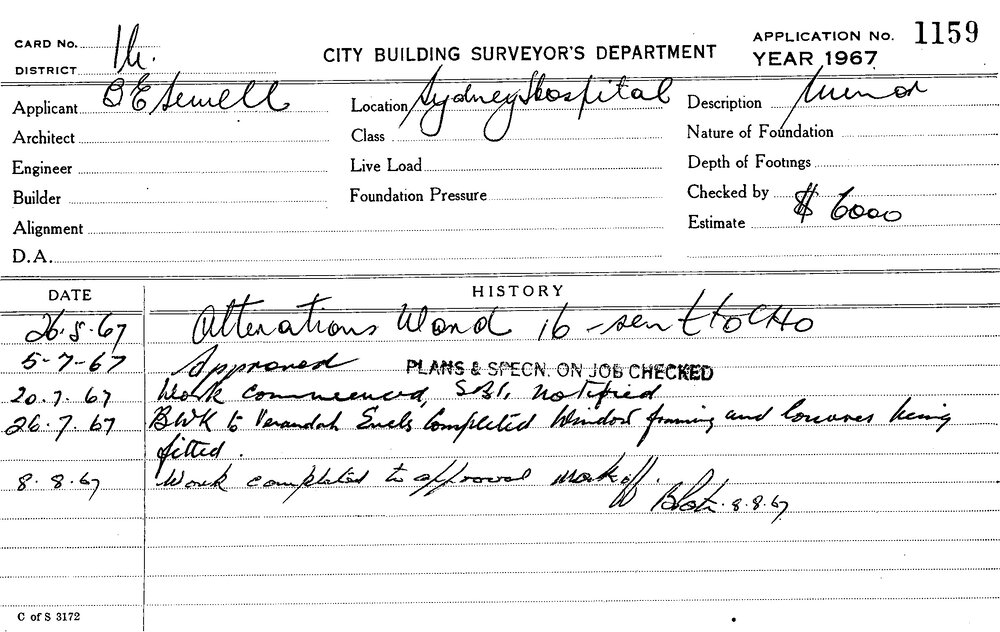 CARD No.
DISTRICT
CITY BUILDING SURVEYOR'S DEPARTMENT
APPLICATION No. 1159
YEAR 1967
Applicant B E Sewell
Location Sydney Hospital
Description Minor
Architect
Class
Nature of Foundation
Engineer
Live Load
Depth of Footings
Builder
Foundation Pressure
Checked by
Alignment
Estimate $ 6000
D.A.
DATE HISTORY
26.5.67 Alterations Ward 16 - sent to CHO
5-7-67 Approved PLANS & SPECN. ON JOB CHECKED
20.7.67 Work commenced, notified
26.7.67 BWK to Verandah Completed Window framing and louvres being
fitted.
8.8.67 Work completed to approval mark off.
8.8.67
C of S 3172